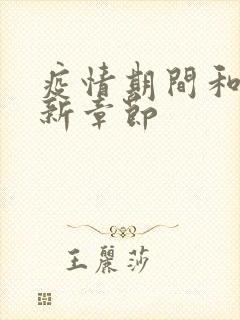 疫情期間和
新章節
王麗莎